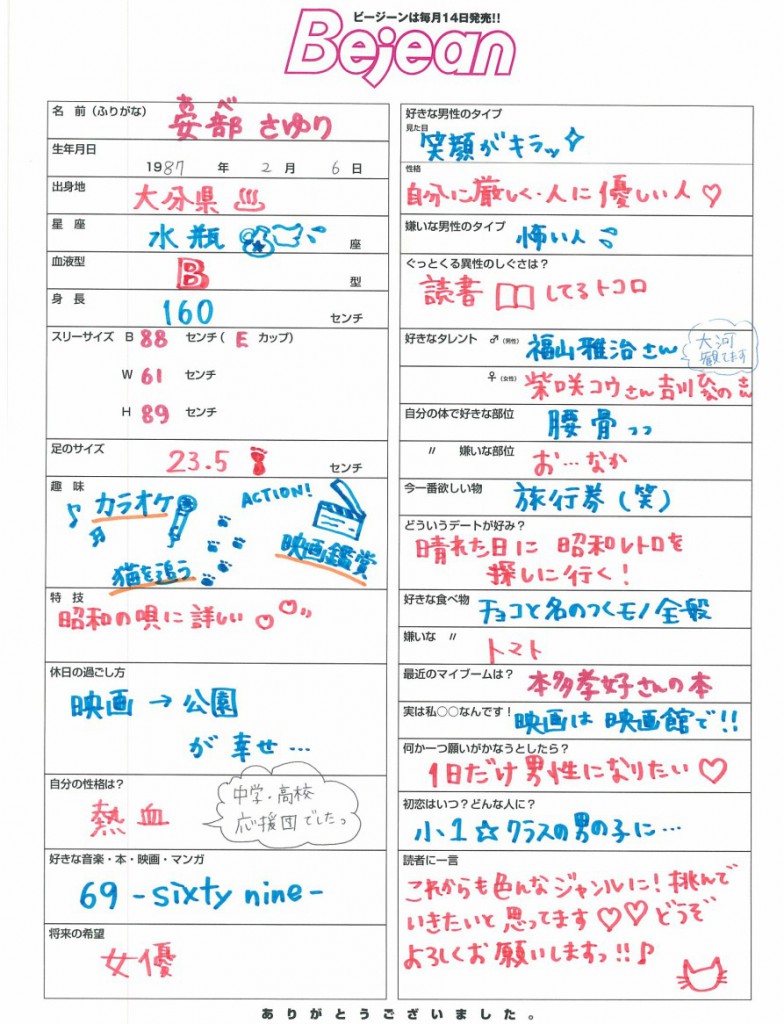 ビージーンは毎月14日発売!!
Bejean
名 前(ふりがな)
あべ
安部 さゆり
生年月日
1987 年 2 月 6 日
出身地
大分県
星 座
水瓶 座
血液型
B 型
身 長
160 センチ
スリーサイズ B 88 センチ( E カップ)
W 61 センチ
H 89 センチ
足のサイズ
23.5 センチ
趣 味
カラオケ
ACTION!
猫を追う
映画鑑賞
特 技
昭和の唄に詳しい♡♡
休日の過ごし方
映画→公園
が幸せ…
自分の性格は?
熱血
中学・高校
応援団でしたっ
好きな音楽・本・映画・マンガ
69 -sixty nine-
将来の希望
女優
好きな男性のタイプ
見た目
笑顔がキラッ
性格
自分に厳しく・人に優しい人♡
嫌いな男性のタイプ
怖い人
ぐっとくる異性のしぐさは?
読書 してるトコロ
好きなタレント ♂(男性)
福山雅治さん
大河
観てます
♀(女性)
柴咲コウさん吉川ひなのさん
自分の体で好きな部位
腰骨っっ
〃 嫌いな部位
お…なか
今一番欲しい物
旅行券(笑)
どういうデートが好み?
晴れた日に 昭和レトロを
探しに行く!
好きな食べ物
チョコと名のつくモノ全般
嫌いな 〃
トマト
最近のマイブームは?
本多孝好さんの本
実は私○○なんです!
映画は映画館で!!
何か一つ願いがかなうとしたら?
1日だけ男性になりたい♡
初恋はいつ?どんな人に?
小1☆クラスの男の子に…
読者に一言
これからも色んなジャンルに!挑んで
いきたいと思ってます♡♡どうぞ
よろしくお願いしますっ!!♪
ありがとうございました。